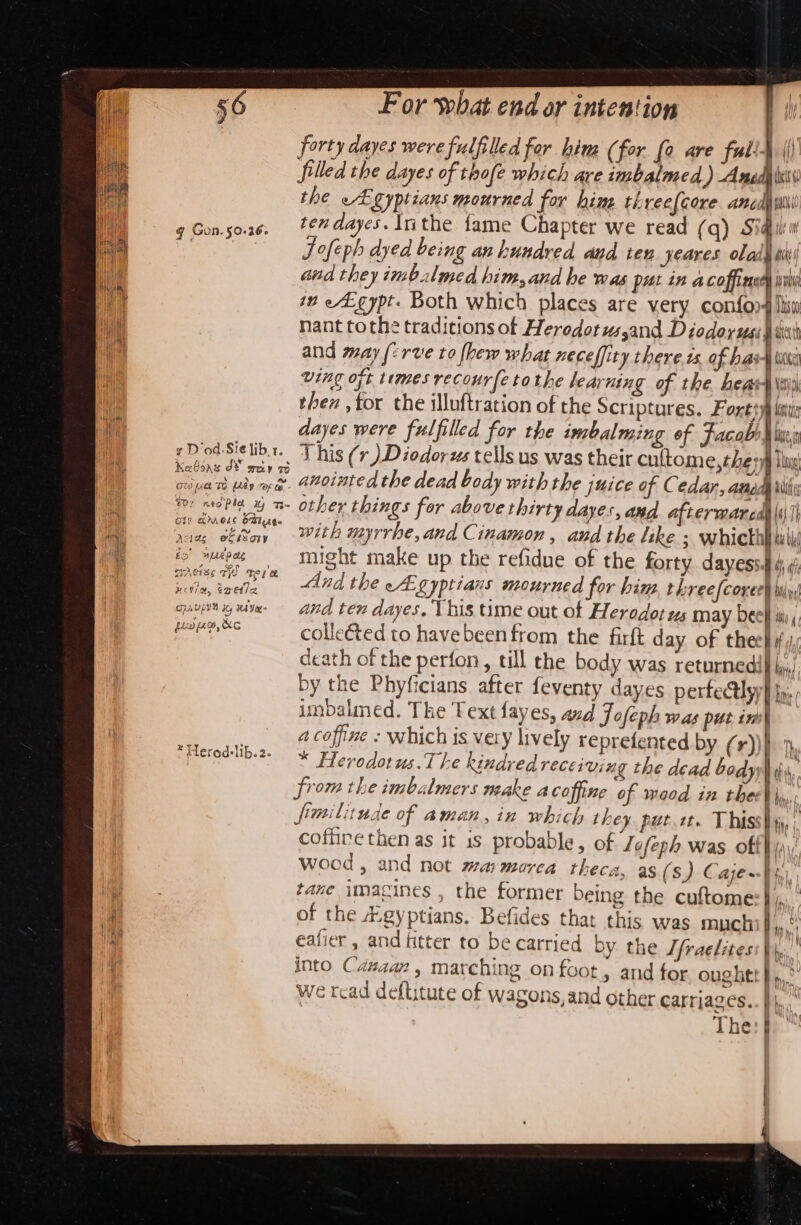 56 For what end or intention
forty dayes were fulfilled for him (for so are full-
filled the dayes of those which are imbalmed) And
the Ægyptians mourned for him threescore and
q Gen. 50.26.
ten dayes. In the same Chapter we read (q) So
Joseph dyed being an hundred and ten yeares old
and they imbalmed him, and he was put in a coffine
in Ægypt. Both which places are very conso-
nant to the traditions of Herodotus, and Diodorus
and may serve to shew what necessity there is of ha-
ving oft times recourse to the learning of the hea-
then, for the illustration of the Scriptures. Forty
dayes were fulfilled for the imbalming of Jacob
r Diod. Sic lib. 1.
This (r) Diodorus tells us was their custome, they
anointed the dead body with the juice of Cedar, and
other things for above thirty dayes, and afterward
with myrrhe, and Cinamon, and the like; which
might make up the residue of the forty dayes
And the Ægyptians mourned for him, threescore
and ten dayes. This time out of Herodotus may bee
collected to have been from the first day of the
death of the person, till the body was returned
by the Physicians after seventy dayes perfectly
imbalmed. The Text sayes, and Joseph was put in
a coffine: which is very lively represented by (r)
* Herod. lib. 2.
* Herodotus. The kindred receiving the dead body
from the imbalmers make a coffine of wood in the
similitude of a man, in which they put it. This
coffine then as it is probable, of Joseph was of
wood, and not marmorea theca, as (s) Caje-
tane imagines, the former being the custome
of the Ægyptians. Besides that this was much
easier, and fitter to be carried by the Israelites
into Canaan, marching on foot, and for ought
we read destitute of wagons, and other carriages.
The